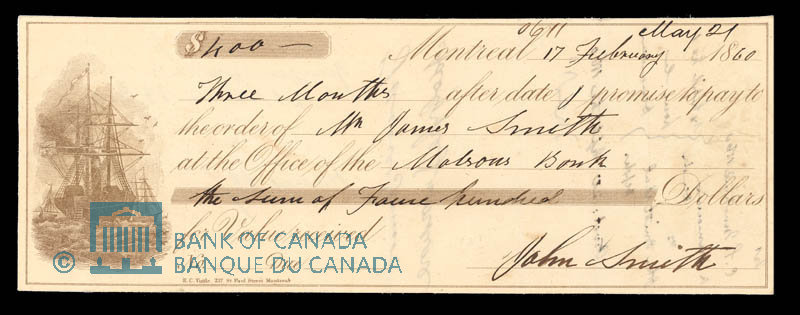 0611 May 21
$400 — Montreal 17 February 1860
Three Months after date I promise to pay to
the order of Mr James Smith
at the Office of the Molsons Bank
the sum of Four hundred Dollars
for Value received
John Smith
© BANK OF CANADA
BANQUE DU CANADA
R. C. Tuttle, 227 St Paul Street Montreal